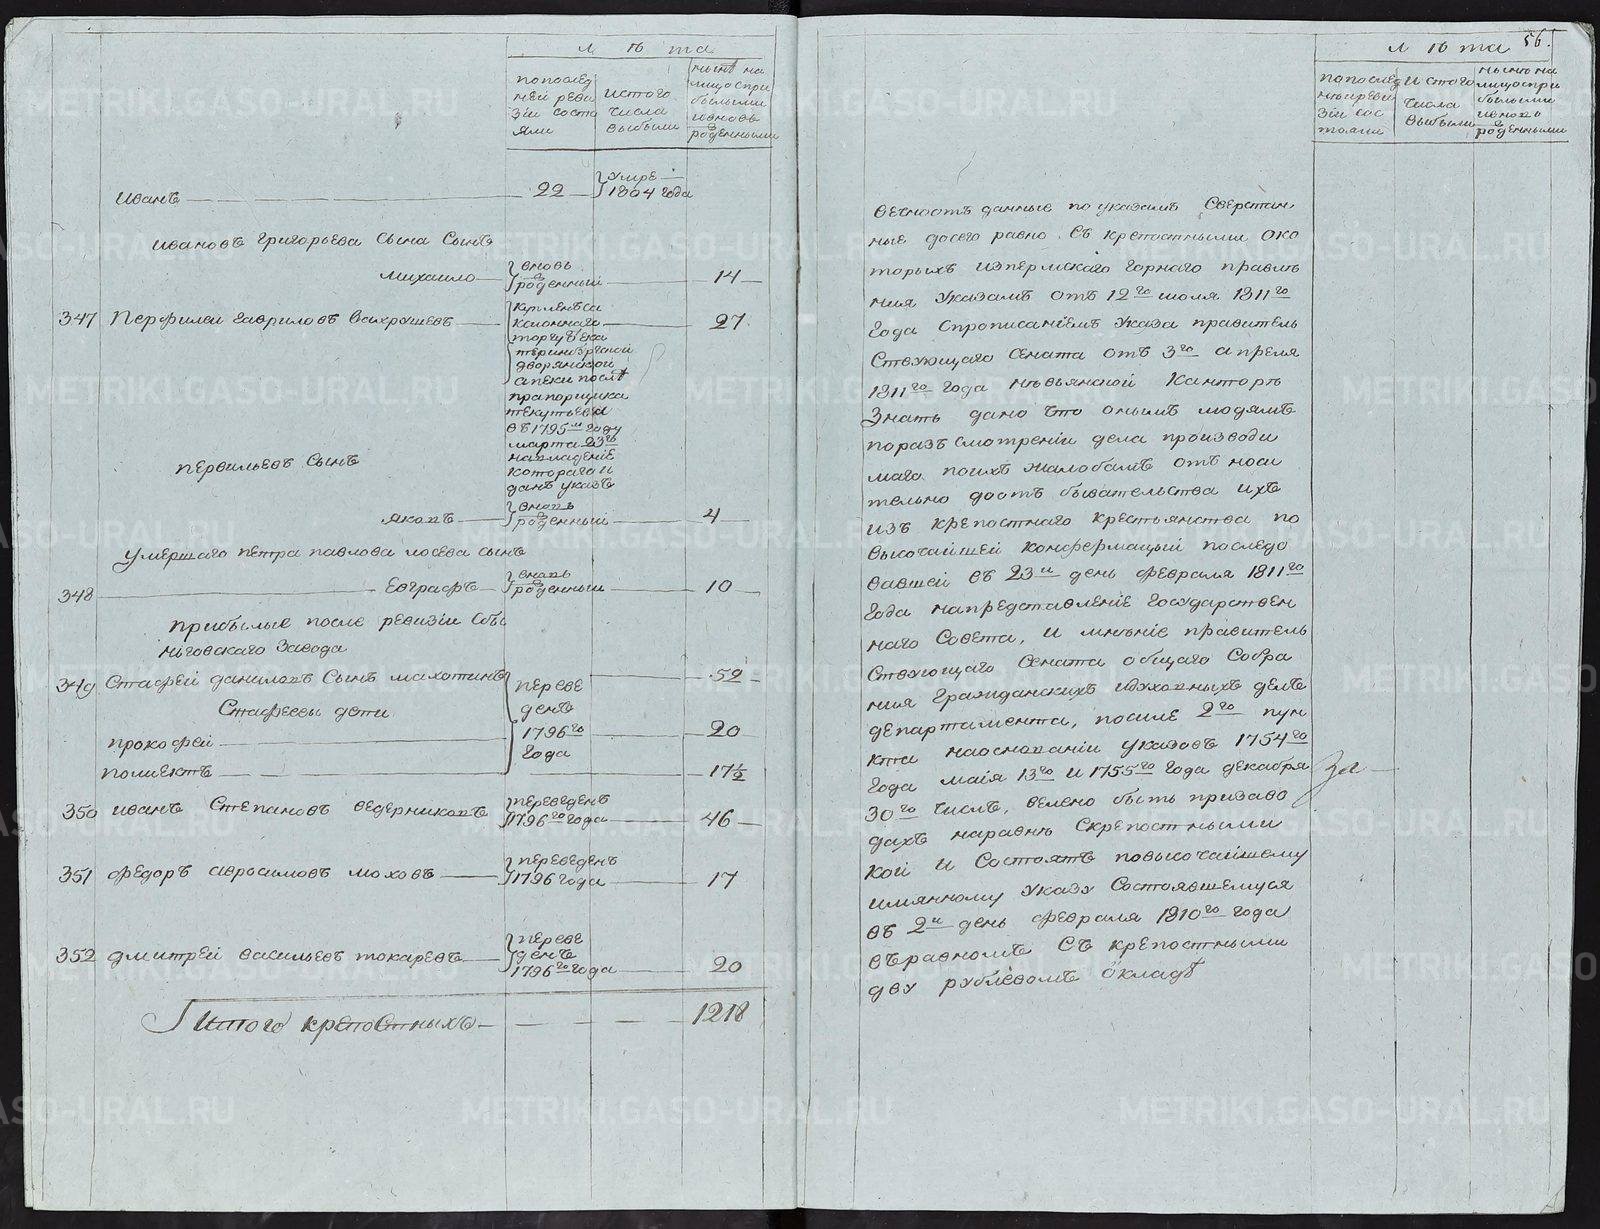 лѣта
по послед
ней реви
зіи состо
яли
ис того
числа
выбыли
нынѣ на
лицо с при
былыми
и вновь
роденными
Иванъ 22 умре 1804 года
Ивановъ Григорьева сына сынъ
Михаило вновь роденный 14
347 Перфилеи Гавриловъ Вахрушевъ 27
купленъ са
кціоннаго
торгу Ека
теринбургской
дворянской
опеки послѣ
прапорщика
въ 1795м году
марта 23го
на владеніе
котораго и
данъ указъ
Перфильевъ сынъ
Яковъ вновь роденный 4
Умершаго Петра Павлова Лосева сынъ
348 Евграфъ вновь роденный 10
Прибылые после ревизіи Сы
349 Стафей Даниловъ сынъ Махотинъ 52
Стафеевы дети переве
денъ
Прокофей 1796го 20
года
Полиектъ 17½
350 Иванъ Степановъ Ведерниковъ переведенъ 1796го года 46
351 Федоръ Абросимовъ Моховъ переведенъ 1796 года 17
352 Дмитрей Васильевъ Токаревъ переве
денъ
1796го года 20
Итого крепостныхъ 1218
56.
лѣта
по послед
ней реви
зіи сос
тояли
ис того
числа
выбыли
нынѣ на
лицо с при
былыми
и вновь
роденными
вечность данные по указамъ сверстан
ные до сего равно съ крепостными о ко
торыхъ из Пермскаго Горнаго правле
ния указамъ отъ 12го июля 1811го
года спрописаніемъ указа правитель
ствующаго Сената отъ 3го апреля
1811го года Невьянской Канторѣ
знать дано что онымъ людямъ
по разъсмотреніи дела производи
маго по ихъ жалобамъ относи
тельно до отъбывательства ихъ
изъ крепостнаго крестьянства по
высочайшей конфермацыи последо
вавшей въ 23и день февраля 1811го
года на представленіе Государствен
наго Совета, и мненіе правитель
ствующаго Сената общаго собра
ния гражданскихъ и духовныхъ делъ
департамента, по силе 2го пун
кта на основаніи указовъ 1754го
года маія 13го и 1755го года декабря
30го числъ, велено быть при заво
дахъ наравнѣ с крепостными
кои и состоятъ по высочайшему
имянному указу состоявшемуся
въ 2и день февраля 1810го года
въ равномъ съ крепостными
дву рублевомъ окладѣ
За
METRIKI.GASO-URAL.RU